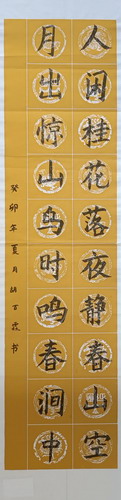 人闲桂花落夜静春山空
月出惊山鸟时鸣春涧中
癸卯年夏月胡百霞书